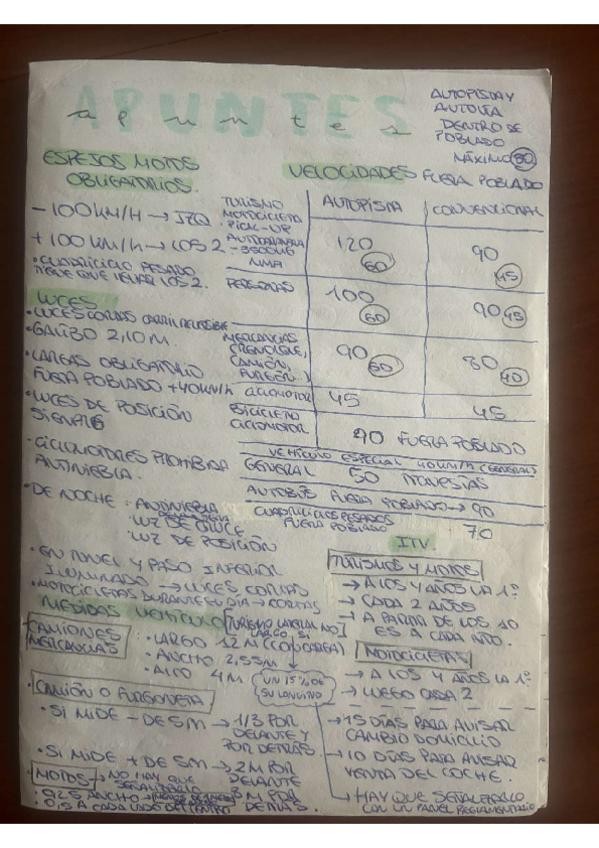 APUNTES
apuntes
AUTOPISTA Y
AUTOVIA
DENTRO DE
POBLADO
MÁXIMO 80
ESPEJOS MOTOS
OBLIGATORIOS.
- 100 KM/H → IZQ
+ 100 KM/H → LOS 2
• CUADRICICLO PESADO
TIENE QUE LLEVAR LOS 2.
VELOCIDADES FUERA POBLADO
AUTOPISTA CONVENCIONAL
TURISMO
MOTOCICLETA
PICK-UP
AUTOCARAVANA
- 3500KG
MMA
120 60 90 45
PERSONAS 100 60 90 45
MERCANCIAS
CAMIÓN,
FURGÓN
90 60 80 40
CICLOMOTOR 45 45
BICICLETA
CICLOMOTOR
90 FUERA POBLADO
VEHÍCULO ESPECIAL 40KM/H (GENERAL)
GENERAL 50 TRAVESIAS
AUTOBÚS FUERA POBLADO → 90
CUADRICICLOS PESADOS
FUERA POBLADO 70
LUCES
• LUCES CORTAS CARRIL REVERSIBLE
• GALIBO 2,10 M.
• LARGAS OBLIGATORIO
FUERA POBLADO + 40KM/H
• LUCES DE POSICIÓN
SIEMPRE
• CICLOMOTORES PROHIBIDA
ANTINIEBLA.
• DE NOCHE: • ANTINIEBLA
DELANTERA
• LUZ DE CRUCE
• LUZ DE POSICIÓN
• EN TUNEL Y PASO INFERIOR
ILUMINADO → LUCES CORTAS
• MOTOCICLETAS DURANTE EL DIA → CORTAS
ITV
TURISMOS Y MOTOS
→ A LOS 4 AÑOS LA 1º
→ CADA 2 AÑOS
→ A PARTIR DE LOS 10
ES A CADA AÑO.
MOTOCICLETAS
→ A LOS 4 AÑOS LA 1º
→ LUEGO CADA 2
→ 15 DÍAS PARA AVISAR
CAMBIO DOMICILIO
→ 10 DÍAS PARA AVISAR
VENTA DEL COCHE.
→ HAY QUE SEÑALIZARLO
CON UN PANEL REGLAMENTARIO
MEDIDAS VEHICULO
[TURISMO NO
LARGO SI]
CAMIONES
MERCANCIAS
• LARGO 12 M (CON CARGA)
• ANCHO 2,55M
• ALTO 4 M
UN 15% DE
SU LONGITUD
• CAMIÓN O FURGONETA
• SI MIDE - DE 5M → 1/3 POR
DELANTE Y
POR DETRÁS.
• SI MIDE + DE 5M → 2M POR
DELANTE
3 M POR
DETRÁS.
• MOTOS → NO HAY QUE
SEÑALIZARLO
• 0,25 ANCHO →
• 0,5 A CADA LADO DEL CENTRO